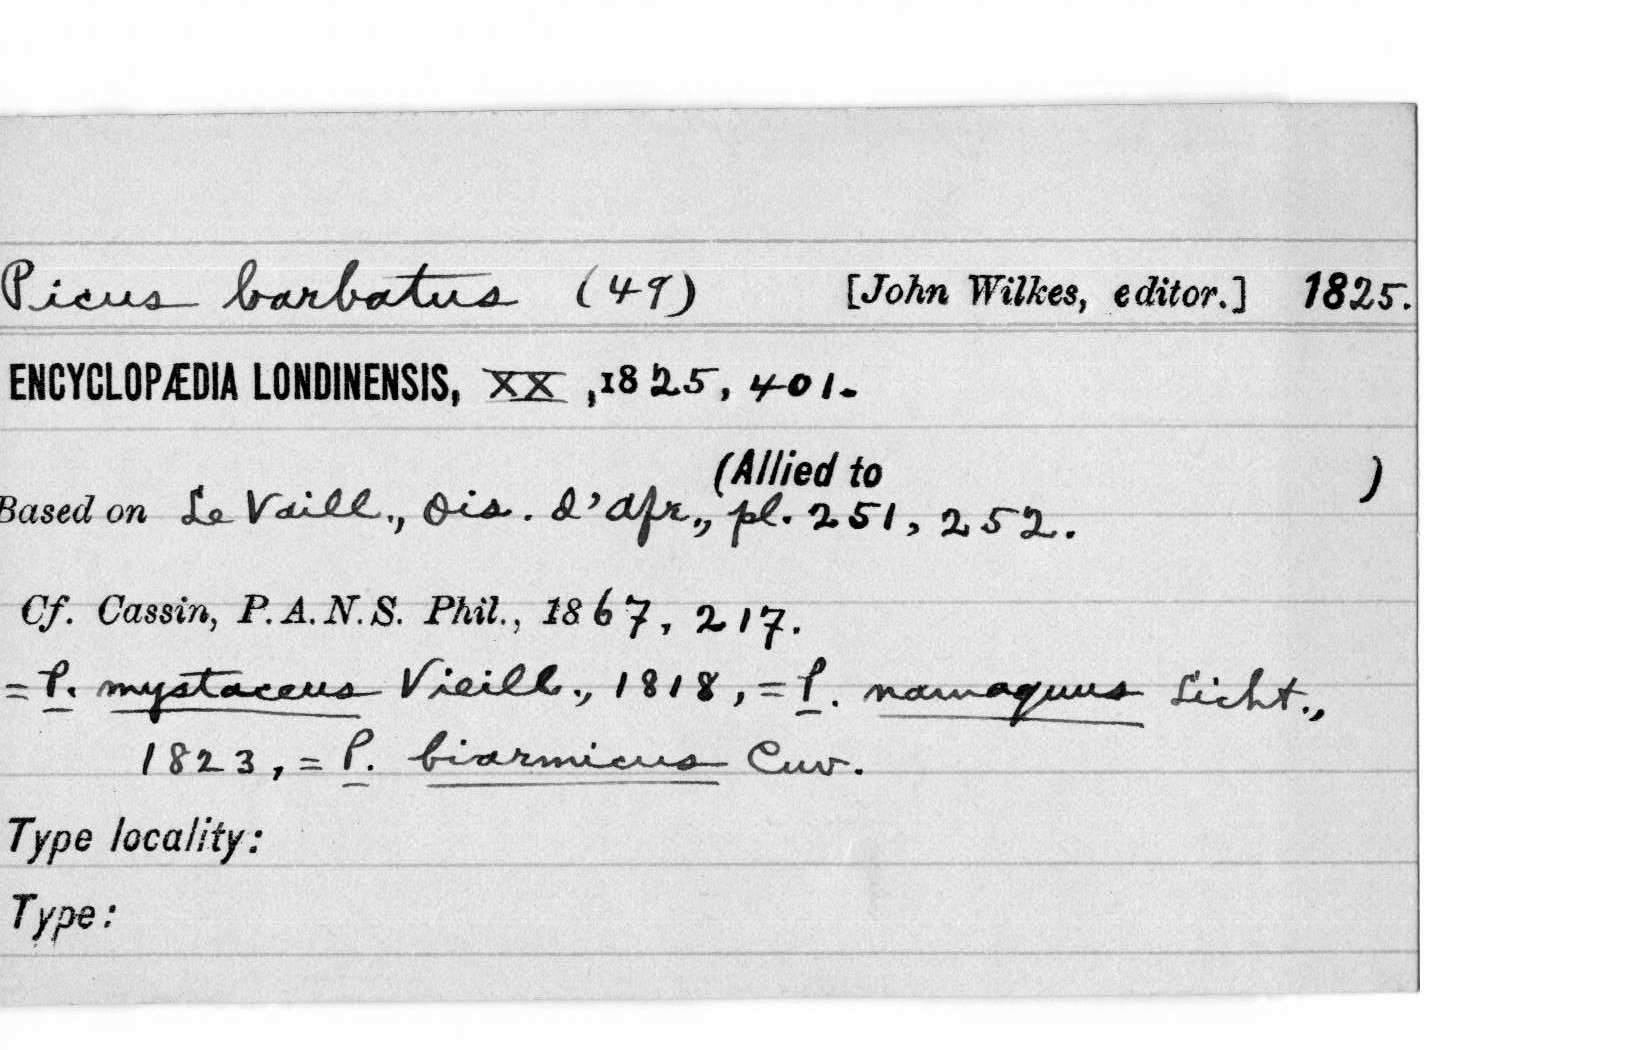 Picus barbatus (49) [John Wilkes, editor.] 1825.
ENCYCLOPÆDIA LONDINENSIS, XX, 1825, 401.
(Allied to )
Based on Le Vaill., Ois. d'Afr., pl. 251, 252.
Cf. Cassin, P.A.N.S. Phil., 1867, 217.
=P. mystaceus Vieill., 1818, =P. namaquus Licht.,
1823, =P. biarmicus Cuv.
Type locality:
Type: